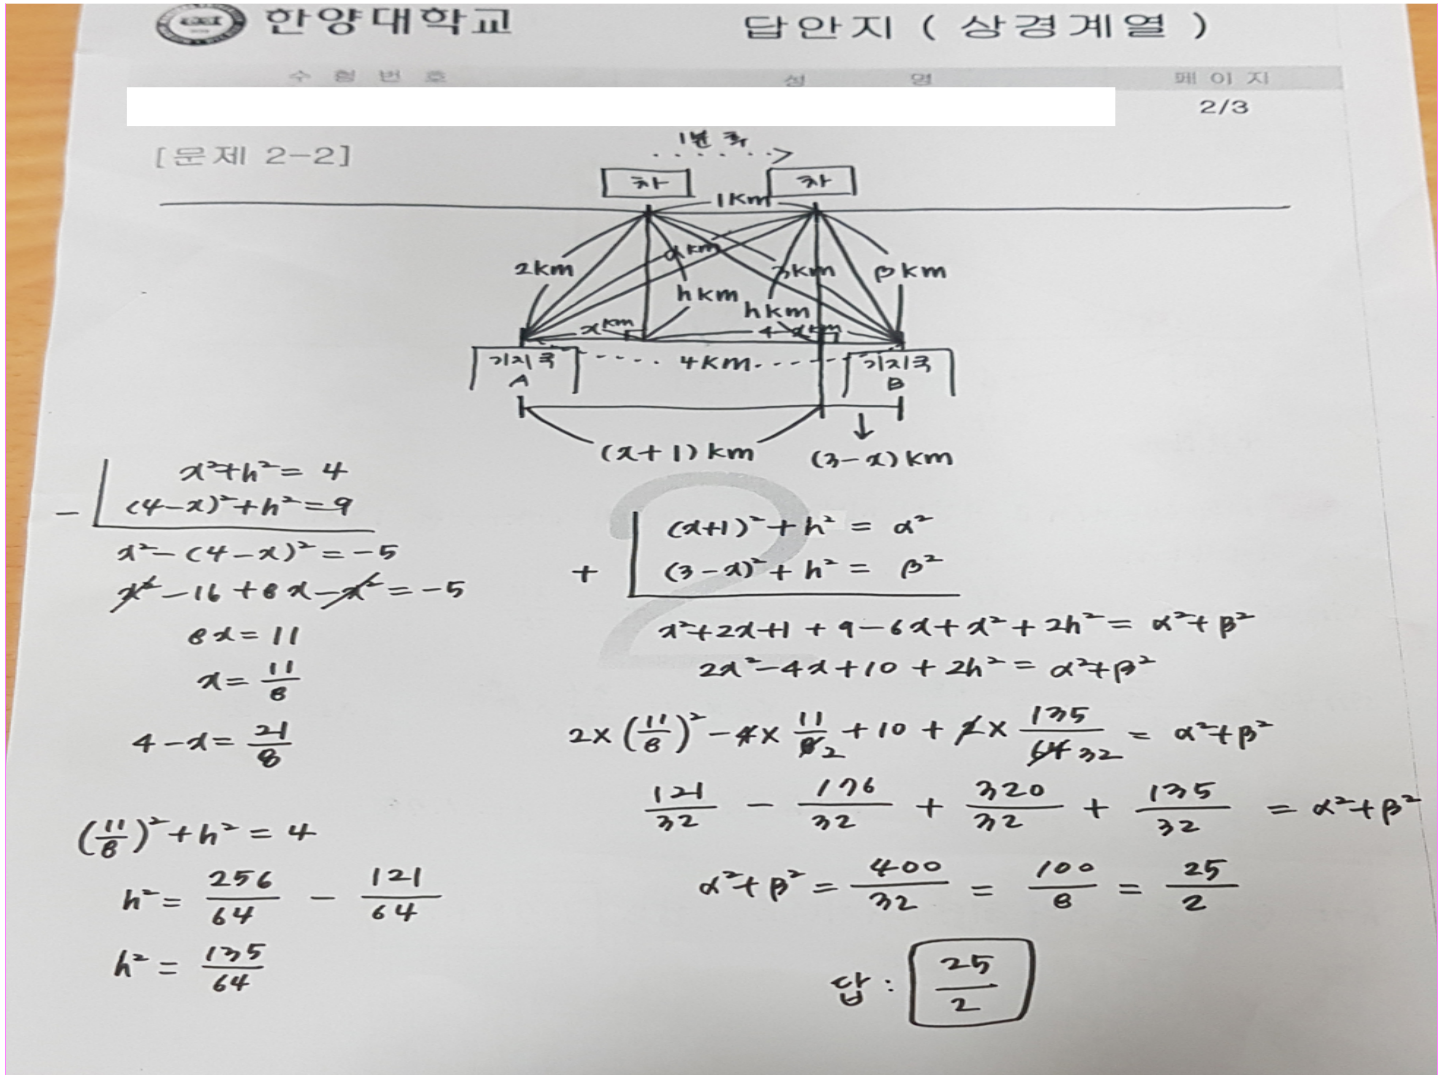 한양대학교 답안지 ( 상경계열 )
수 험 번 호 성 명 페 이 지
2/3
[문제 2-2]
1분 후
차 차
1km
2km αkm 3km βkm
hkm hkm
xkm 4-xkm
기지국 A 4km 기지국 B
(x+1) km (3-x) km
x²+h²= 4
(4-x)²+h²=9
x²-(4-x)²=-5
x²-16+8x-x²=-5
8x=11
x=11/8
4-x=21/8
(11/8)²+h²=4
h²=256/64 - 121/64
h²=135/64
2
(x+1)²+h²=α²
+ (3-x)²+h²= β²
x²+2x+1+9-6x+x²+2h²=α²+β²
2x²-4x+10+2h²=α²+β²
2×(11/8)²-4×11/8 2+10+2×135/64 32=α²+β²
121/32 - 176/32 + 320/32 + 135/32 = α²+β²
α²+β²=400/32=100/8=25/2
답 : 25/2